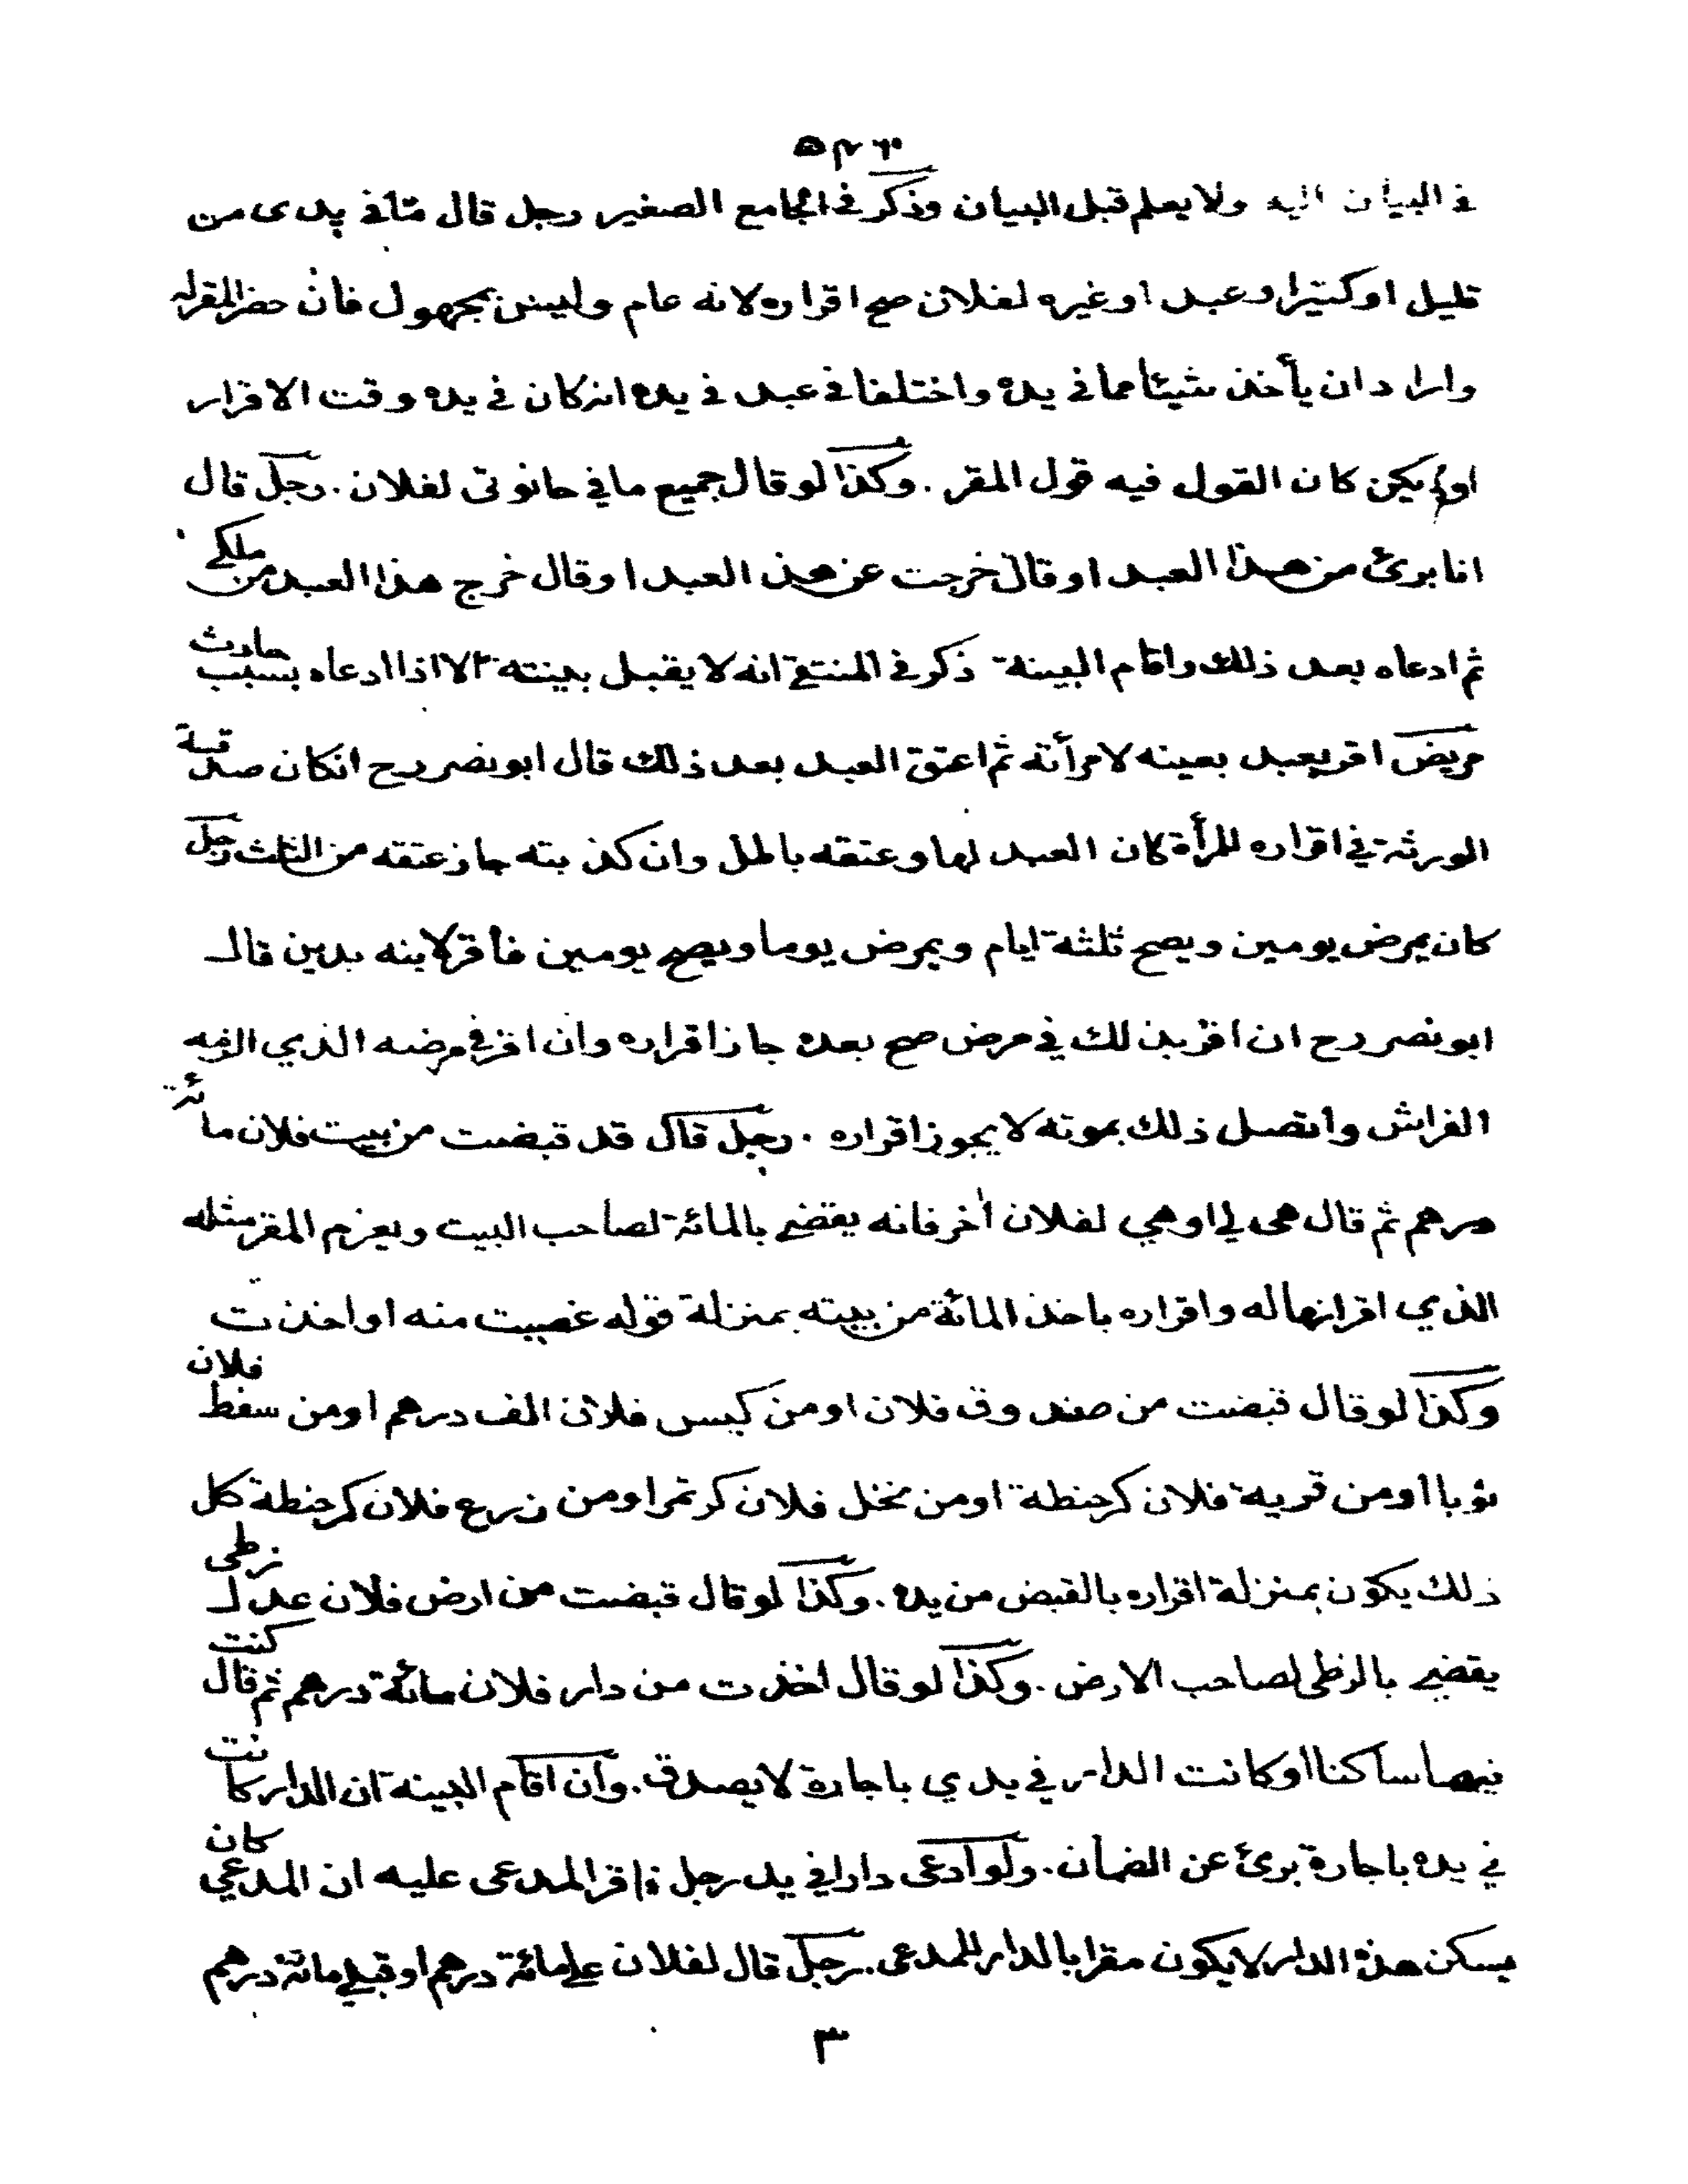 ٥٤٣
في البيان اليه ولا يعلم قبل البيان وذكر في الجامع الصغير رجل قال ما في يدى من
قليل او كثير او عبد او غيره لفلان صح اقراره لانه عام وليس بمجهول فان حضر المقر له
واراد ان يأخذ شيئا مما في يده واختلفا في عبد في يده انه كان في يده وقت الاقرار
او لم يكن كان القول فيه قول المقر . وكذا لو قال جميع ما في حانوتى لفلان . رجل قال
انا برئ من هذا العبد او قال خرجت عن هذ العبد او قال خرج هذا العبد من ملكي
ثم ادعاه بعد ذلك واقام البينة ذكر في المنتقى انه لا يقبل بينته الا اذا ادعاه بسبب حادث
مريض اقر بعبد بعينه لامرأته ثم اعتق العبد بعد ذلك قال ابو نصر رح انكان صدقة
الورثة في اقراره للمرأة كان العبد لها وعتقه باطل وان كذبته جاز عتقه من الثلث رجل
كان يمرض يومين ويصح ثلثة ايام ويمرض يوما ويصح يومين فأقر لابنه بدين قال
ابو نصر رح ان اقر بذلك في مرض صح بعده جاز اقراره وان اقر في مرضه الذي الزمه
الفراش واتصل ذلك بموته لا يجوز اقراره . رجل قال قد قبضت من بيت فلان مائة
درهم ثم قال هى لي او هي لفلان أخر فانه يقضي بالمائة لصاحب البيت ويغرم المقر مثله
الذي اقر انها له واقراره باخذ المائة من بيته بمنزلة قوله غصبت منه او اخذت
وكذا لو قال قبضت من صندوق فلان او من كيس فلان الف درهم او من سفط فلان
ثوبا او من قريه فلان كر حنطة او من نخل فلان كر تمر او من زرع فلان كر حنطة كل
ذلك يكون بمنزلة اقراره بالقبض من يده . وكذا لو قال قبضت من ارض فلان عدل زطى
يقضي بالزطى لصاحب الارض . وكذا لو قال اخذت من دار فلان مائة درهم ثم قال كنت
فيها ساكنا او كانت الدار في يدي باجارة لا يصدق . وان اقام البينة ان الدار كانت
في يده باجارة برئ عن الضمان . ولو ادعى دارا في يد رجل فاقر المدعى عليه ان المدعي كان
يسكن هذه الدار لا يكون مقرا بالدار للمدعى . رجل قال لفلان علي مائة درهم او قبلي مائة درهم
٣